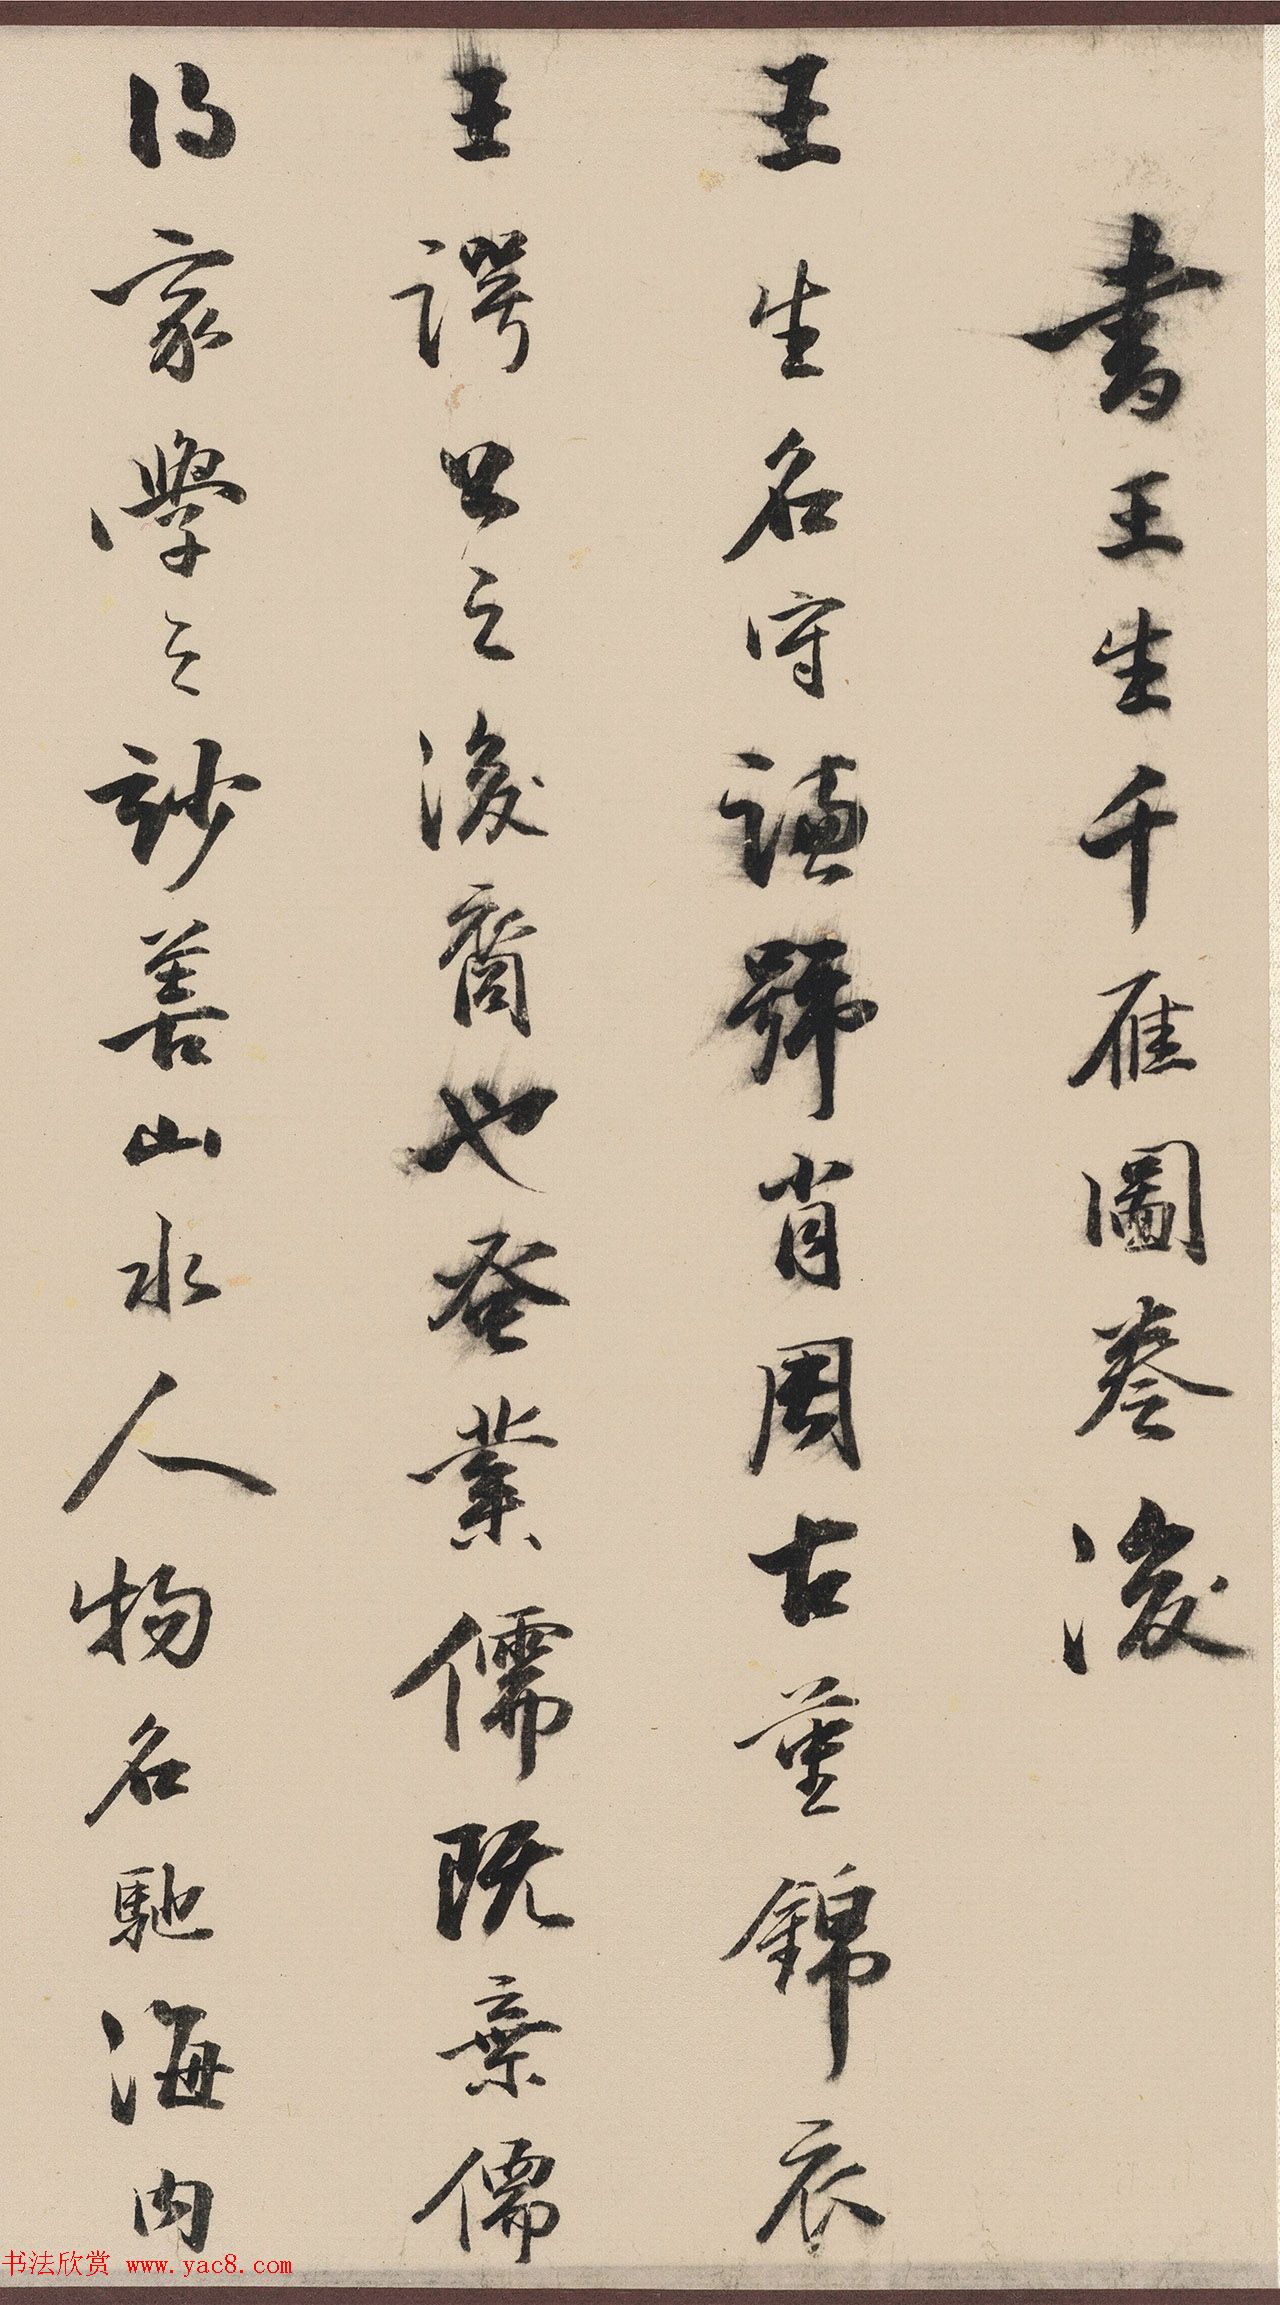 書王生千雁圖卷後
王生名守謙號肖周古堇錦衣
王諤公之後裔也蚤業儒既棄儒
得家學之妙善山水人物名馳海内
书法欣赏 www.yac8.com